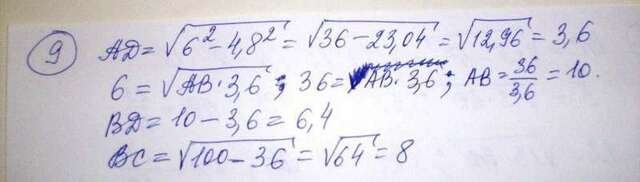 9 AD=√6²-4,8²=√36-23,04=√12,96=3,6
6=√AB·3,6; 36=AB·3,6; AB=36/3,6=10.
BD=10-3,6=6,4
BC=√100-36=√64=8